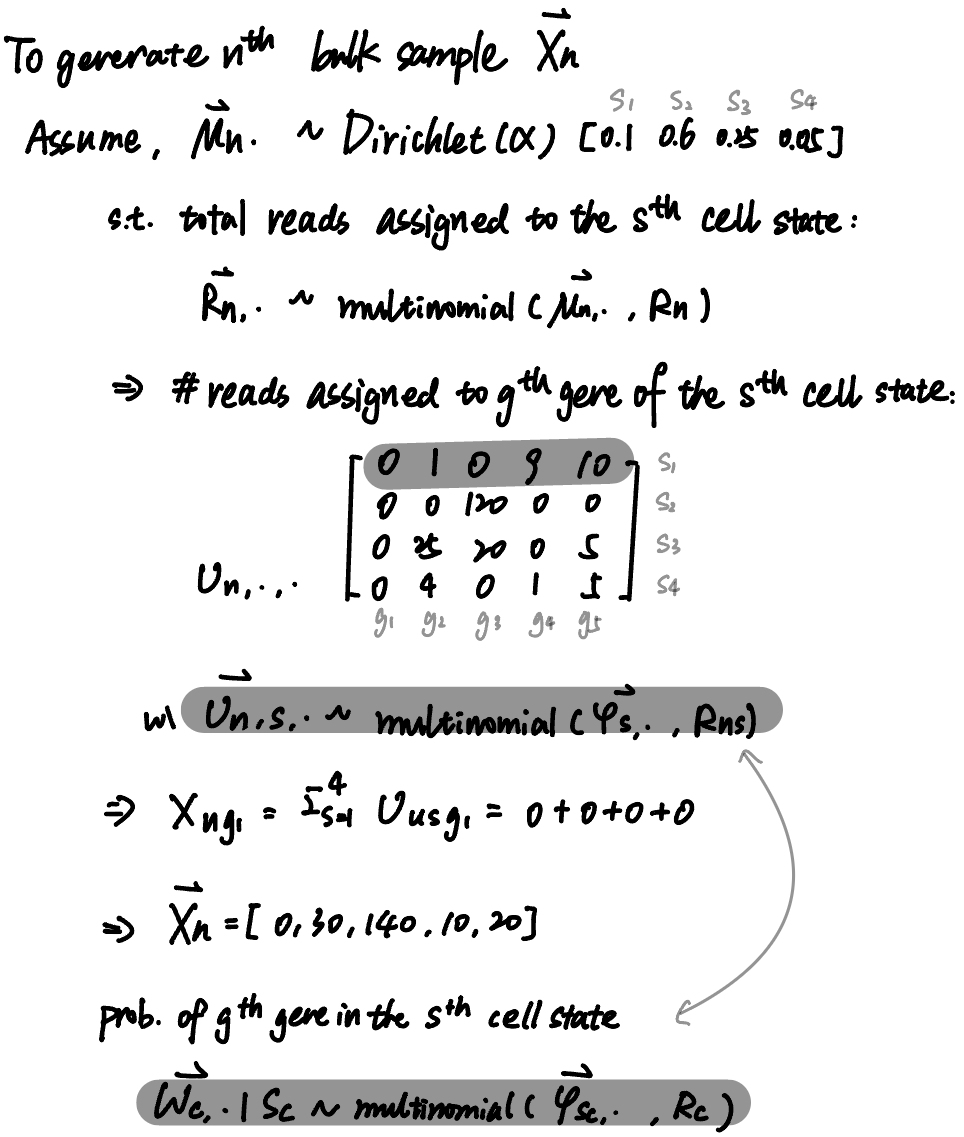 To generate nth bulk sample X⃗n
S1 S2 S3 S4
Assume, μ⃗n. ~ Dirichlet(α) [0.1 0.6 0.25 0.05]
s.t. total reads assigned to the sth cell state:
R⃗n,. ~ multinomial (μ⃗n,. , Rn)
⇒ # reads assigned to gth gene of the sth cell state:
0 1 0 9 10 S1
0 0 120 0 0 S2
0 25 20 0 5 S3
Un,.,. 0 4 0 1 5 S4
g1 g2 g3 g4 g5
w/ U⃗n,s,. ~ multinomial (φ⃗s,. , Rns)
⇒ Xng1 = Σ4s=1 Uusg1 = 0+0+0+0
⇒ X⃗n = [0, 30, 140, 10, 20]
prob. of gth gene in the sth cell state
W⃗c,. | Sc ~ multinomial (φ⃗sc,. , Rc)